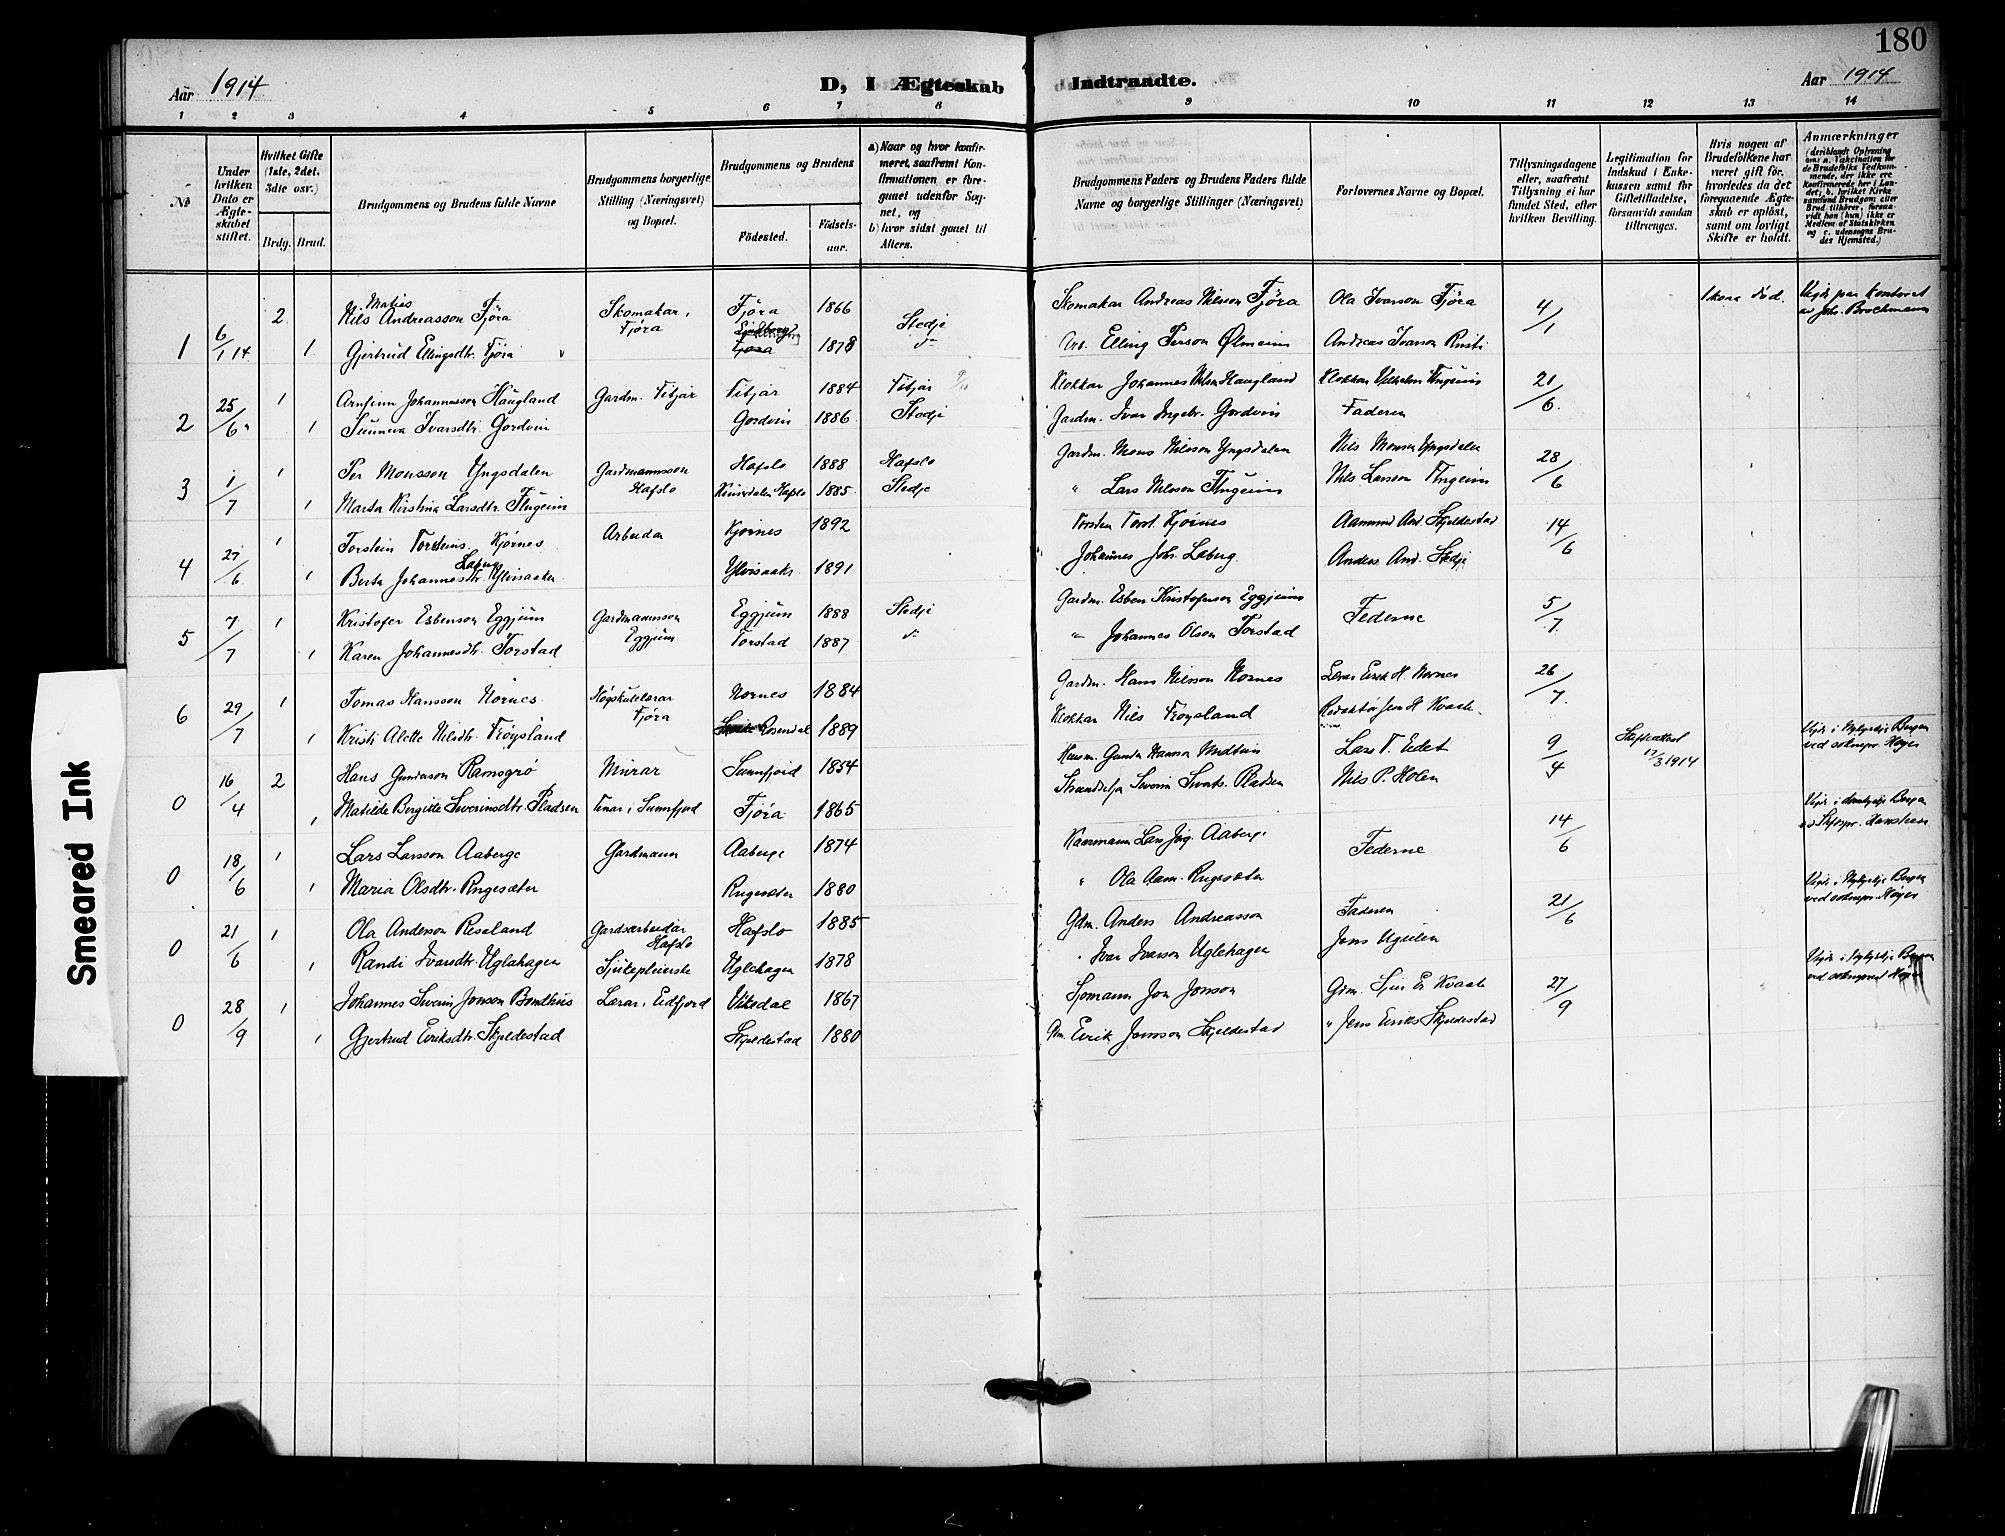 180
Aar 1914
D, I Ægteskab Indtraadte.
Aar 1914
1 2 3 4 5 6 7 8 9 10 11 12 13 14
No
Under hvilken Dato er Ægteskabet stiftet.
Hvilket Gifte (1ste, 2det, 3die osv.)
Brdg. Brud.
Brudgommens og Brudens fulde Navne
Brudgommens borgerlige Stilling (Næringsvei) og Bopæl.
Brudgommens og Brudens
Födested.
Födselsaar.
a) Naar og hvor konfirmeret, saafremt Konfirmationen er foregaaet udenfor Sognet, og
b) hvor sidst gaaet til Alters.
Brudgommens Faders og Brudens Faders fulde Navne og borgerlige Stillinger (Næringsvei)
Forlovernes Navne og Bopæl.
Tillysningsdagene eller, saafremt Tillysning ei har fundet Sted, efter hvilken Bevilling.
Legitimation for Indskud i Enkekassen samt for Giftetilladelse, forsaavidt saadan tiltrænges.
Hvis nogen af Brudefolkene har været gift før, hvorledes da det foregaaende Ægteskab er opløst, samt om lovligt Skifte er holdt.
Anmærkninger
(deriblandt Optegning om: a. Vakcination for de Brudefolks Vedkommende, der ikke ere konfirmerede her i Landet; b. hvilket Kirkesamfund Brudgom eller Brud tilhører, forsaavidt han (hun) ikke er Medlem af Statskirken og c. udensogns Brudes Hjemsted.)
1 6/1 14 2 Nils Matias Andreasson Fjøra Skomakar, Fjøra Fjøra 1866 Stedje Skomakar Andreas Nilsson Fjøra Ola Ivarson Fjøra 4/1 1 kona død. Vigde paa kontoret av Joh. Brochmann
1 Gjertrud Ellingsdtr. Fjøra Fjøra 1878 Arb. Elling Person Ølmeim Andreas Ivarson Rusti
2 25/6 1 Arnfinn Johannesson Haugland Gardm. Fitjar Fitjar 1884 Fitjar Klokkar Johannes Nilsen Haugland Klokkar Vilhelm Flugeim 21/6
1 Sunneva Ivarsdtr. Gordvin Gordvin 1886 Stedje Gardm. Ivar Ingebr. Gordvin Faderen
3 1/7 1 Per Monsson Yngsdalen Gardmannsson Hafslo Hafslo 1888 Hafslo Gardm. Mons Nilsson Yngsdalen Nils Monsen Yngsdalen 28/6
1 Marta Kirstina Larsdtr. Flugeim Hafslo 1885 Stedje " Lars Nilsson Flugeim Nils Larsson Flugeim
4 27/6 1 Torstein Torsteins. Kjørnes Arbeidar Kjørnes 1892 Torstein Torst. Kjørnes Aamund And. Skjeldestad 14/6
1 Berta Johannesdtr. Laberg Ylvisaaker Ylvisaakr 1891 Johannes Joh. Laberg Anders And. Stedje
5 7/7 1 Kristofer Esbenson Eggjum Gardmannsson Eggjum Eggjum 1888 Stedje Gardm. Esben Kristoferson Eggjum Federne 5/7
1 Karen Johannesdtr. Torstad Torstad 1887 " Johannes Olson Torstad
6 29/7 1 Tomas Hansson Nornes Høgskulelærar Fjøra Nornes 1884 Gardm. Hans Nilsson Nornes Lærar Eirik H. Nornes 26/7
1 Kristi Alette Nilsdtr. Frøysland Rosendal 1889 Klokkar Nils Frøysland Redaktør Jens H. Kvaale
0 16/4 2 Hans Gundason Ramsgrø Murar Sunnfjord 1854 Husm. Gunda Hansa Midtun Lars T. Eidet 9/4 Skifteattest 12/3 1914 Vigde i Nykyrkja Bergen ved soknepr. Høyer
1 Matilde Bergitte Severinsdtr. Pladsen Fjøra 1865 Strandsitjar Severin Pladsen Nils P. Holen
0 18/6 1 Lars Larsson Aaberge Gardmann Aaberge 1874 Kaarmann Lars Jög. Aaberge Federne 14/6 Vigde i domkyrkja Bergen ved Stiftspr. Hansteen
1 Maria Olsdtr. Rugesæter Rugesæter 1880 " Ola Aam. Rugesæter
0 21/6 1 Ola Anderson Resaland Gardsarbeidar Hafslo Hafslo 1885 Gdm. Anders Andreasson Faderen 21/6 Vigde i Nykyrkja Bergen ved soknepr. Høyer
1 Randi Ivarsdtr. Uglahagen Sjukepleierske Uglehagen 1878 " Ivar Ivarson Uglehagen Jens Ugulen
0 28/9 1 Johannes Severin Jonson Bondhus Lærar, Eidfjord Vikedal 1867 Sjømann Jon Jonson Gdm. Sjur E. Kvaale 27/9 Vigde i Nykyrkja Bergen ved sokneprest Høyer
1 Gjertrud Eiriksdtr. Skjeldestad Skjeldestad 1880 Gm. Eirik Jensson Skjeldestad " Jens Eiriks Skjeldestad
Smeared Ink